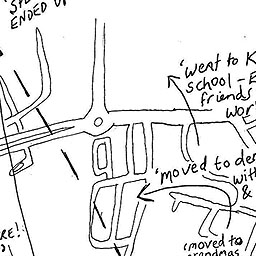 ENDED UP
'WENT TO K
SCHOOL - E
friends
wor
'moved to der
with
&
RE!!
'moved to
grandmas